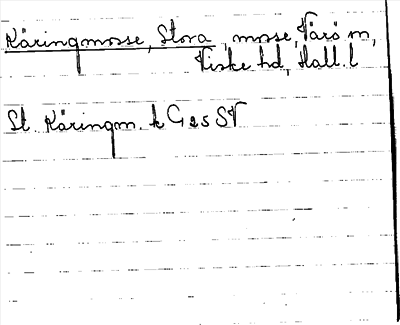 Käringmosse, Stora, mosse, Värö sn,
Viske hd, Hall. l
St. Käringm. k G 25 SV